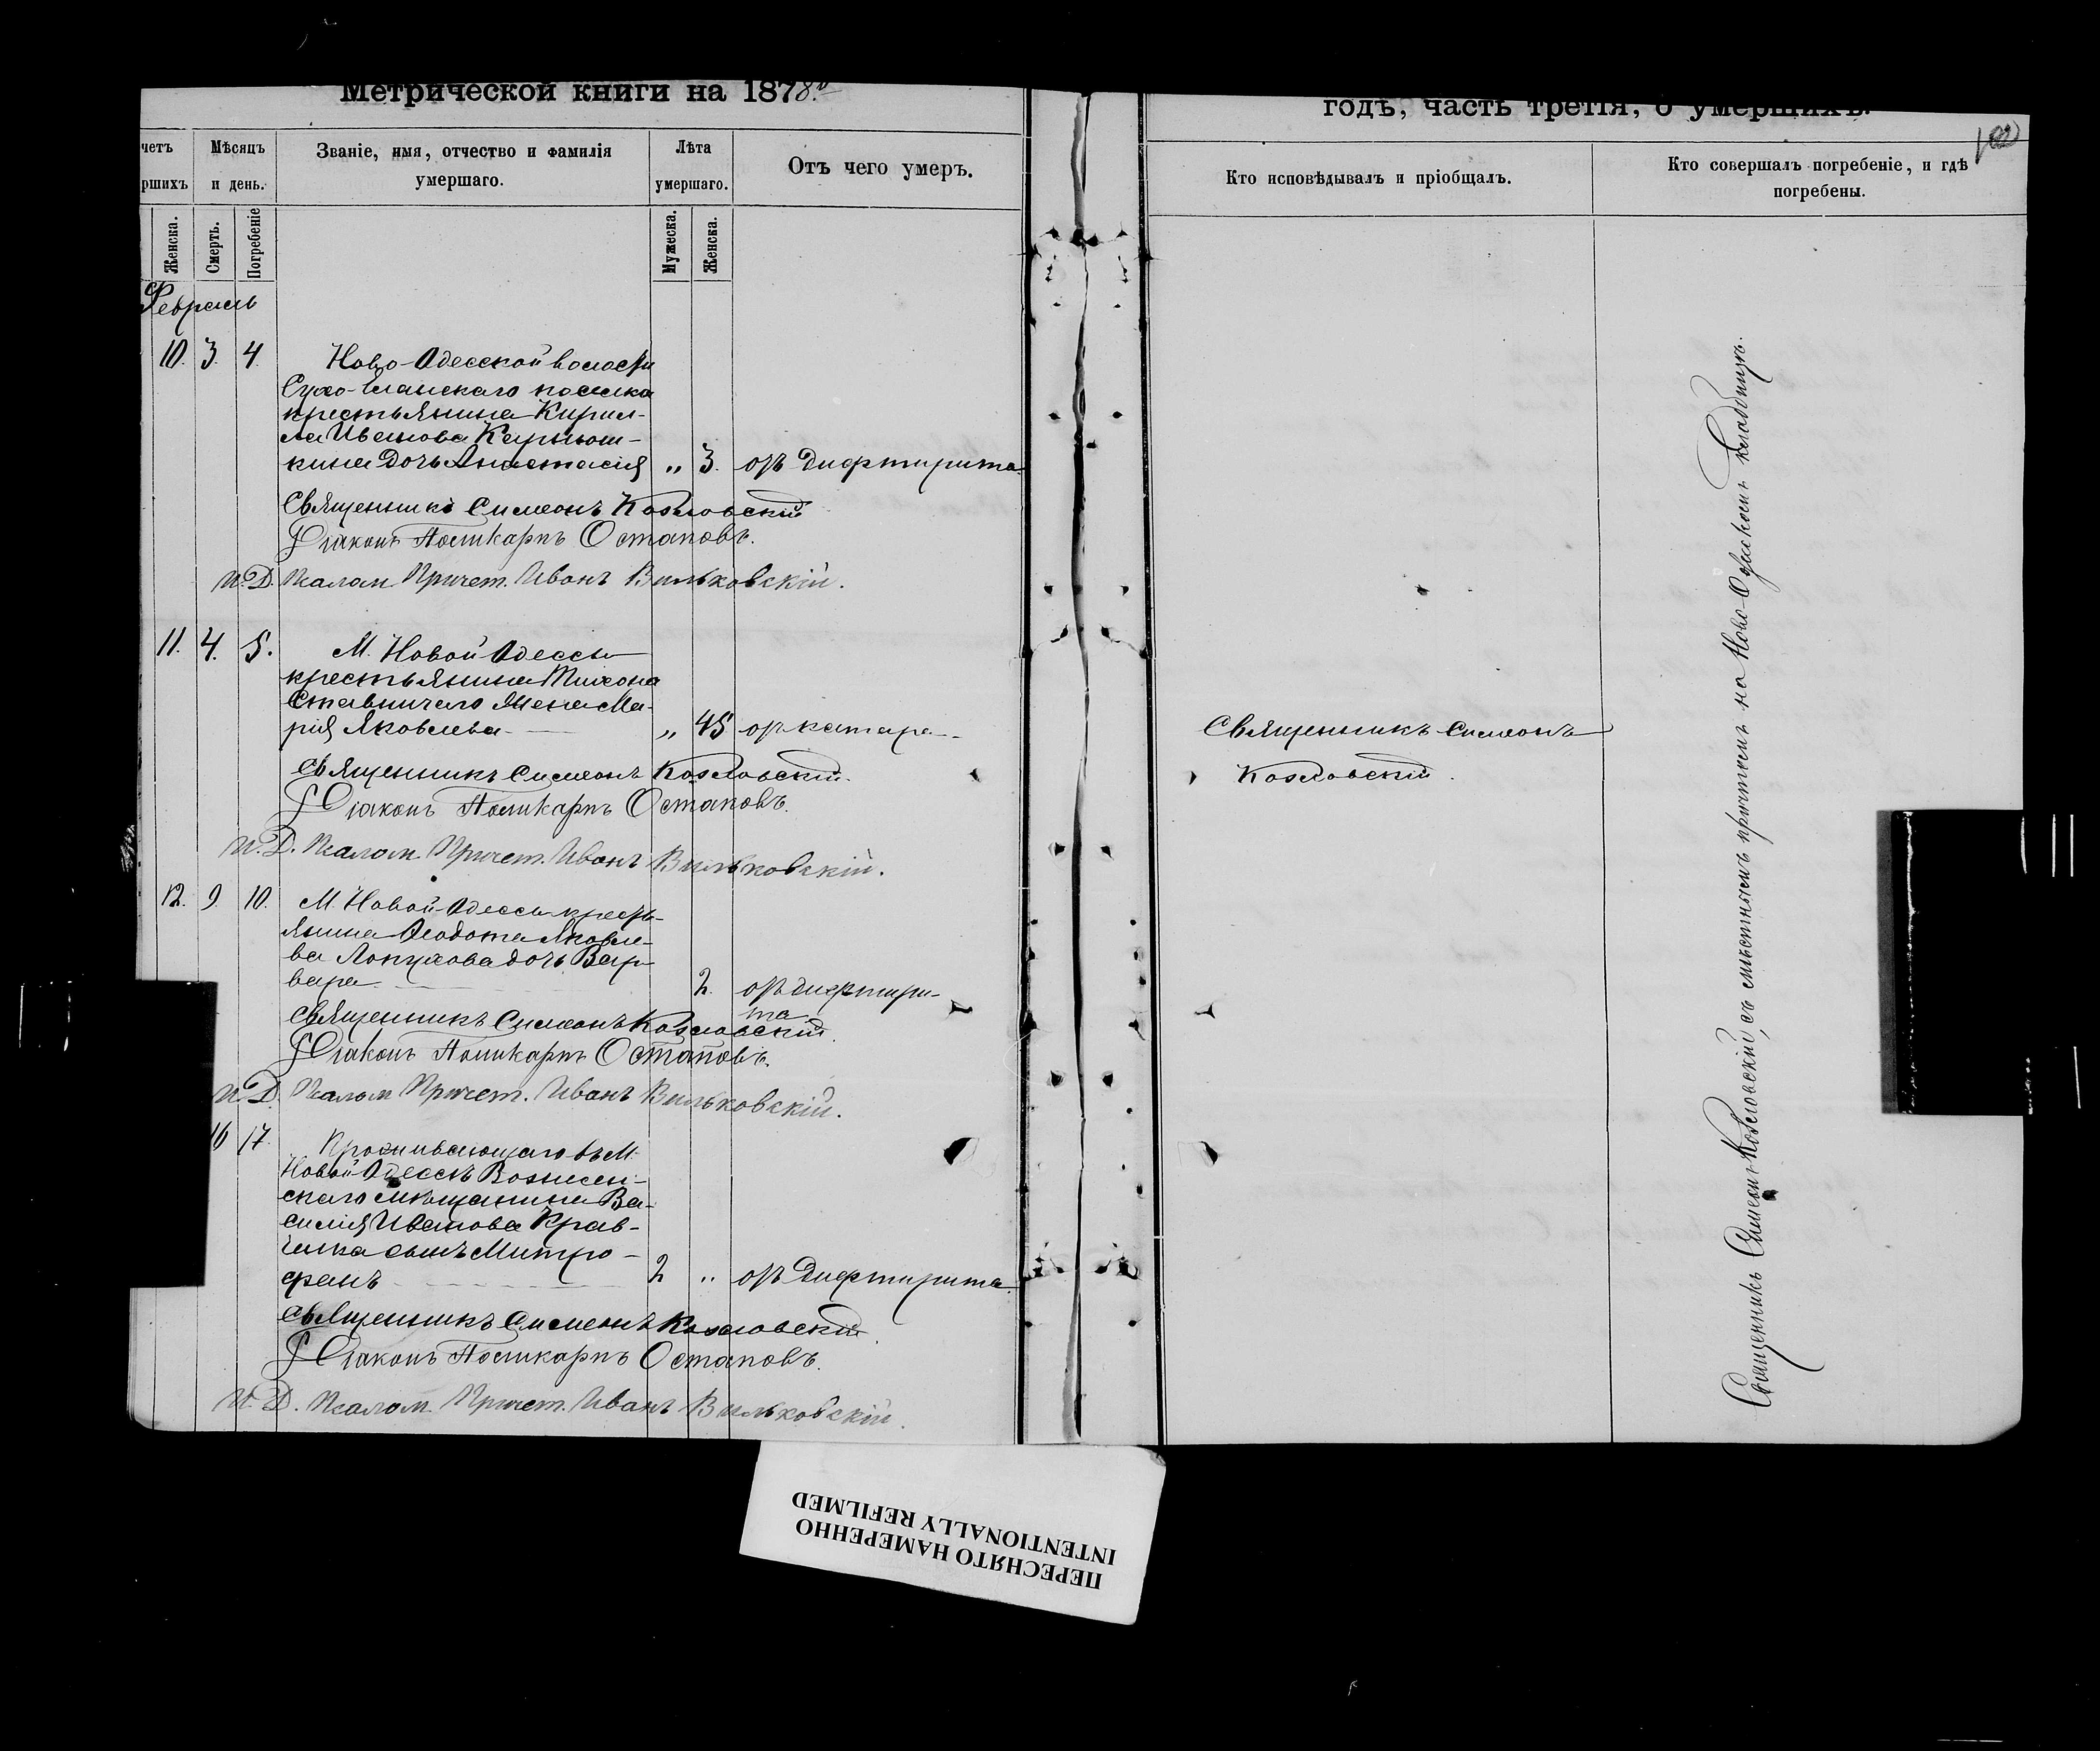 Метрической книги на 1878й
годъ, часть третія, о умершихъ.
102
четъ
ршихъ
Мѣсяцъ
и день.
Званіе, имя, отчество и фамилія
умершаго.
Лѣта
умершаго.
Отъ чего умеръ.
Кто исповѣдывалъ и пріобщалъ.
Кто совершалъ погребеніе, и гдѣ
погребены.
Женска.
Смерть.
Погребеніе
Мужеска.
Женска.
Февраль
10. 3. 4. Ново-Одесской волости
Сухо-Еланскаго поселка
крестьянина Кирил-
ла Иванова
кина дочь Анастасія „ 3. отъ дифтирита
Священникъ Симеонъ Козловскій
Діаконъ Поликарпъ Остаповъ.
И. Д. Псалом. Причет. Иванъ Вильковскій.
11. 4. 5. М. Новой Одессы
крестьянина Тихона
Ставничаго жена Ма-
рія Яковлева „ 45 отъ катара
Священникъ Симеонъ
Козловскій.
Священникъ Симеонъ Козловскій.
Діаконъ Поликарпъ Остаповъ.
И. Д. Псалом. Причет. Иванъ Вильковскій.
12. 9. 10. М. Новой-Одессы кресть-
янина Ѳеодота Яковле-
ва Лопухова дочь Вар-
вара 2. отъ дифтири-
та
Священникъ Симеонъ Козловскій.
Діаконъ Поликарпъ Остаповъ.
И. Д. Псалом. Причет. Иванъ Вильковскій.
16 17. Проживающаго въ М.
Новой Одессѣ Вознесен-
скаго мѣщанина Ва-
силія Иванова Крав-
ченка сынъ Митро-
фанъ 2 „ отъ дифтирита.
Священникъ Симеонъ Козловскій.
Діаконъ Поликарпъ Остаповъ.
И. Д. Псалом. Причет. Иванъ Вильковскій.
Священникъ Симеонъ Козловскій, съ мѣстнымъ причтомъ на Ново-Одесскомъ кладбищѣ.
ПЕРЕСНЯТО НАМЕРЕННО
INTENTIONALLY REFILMED